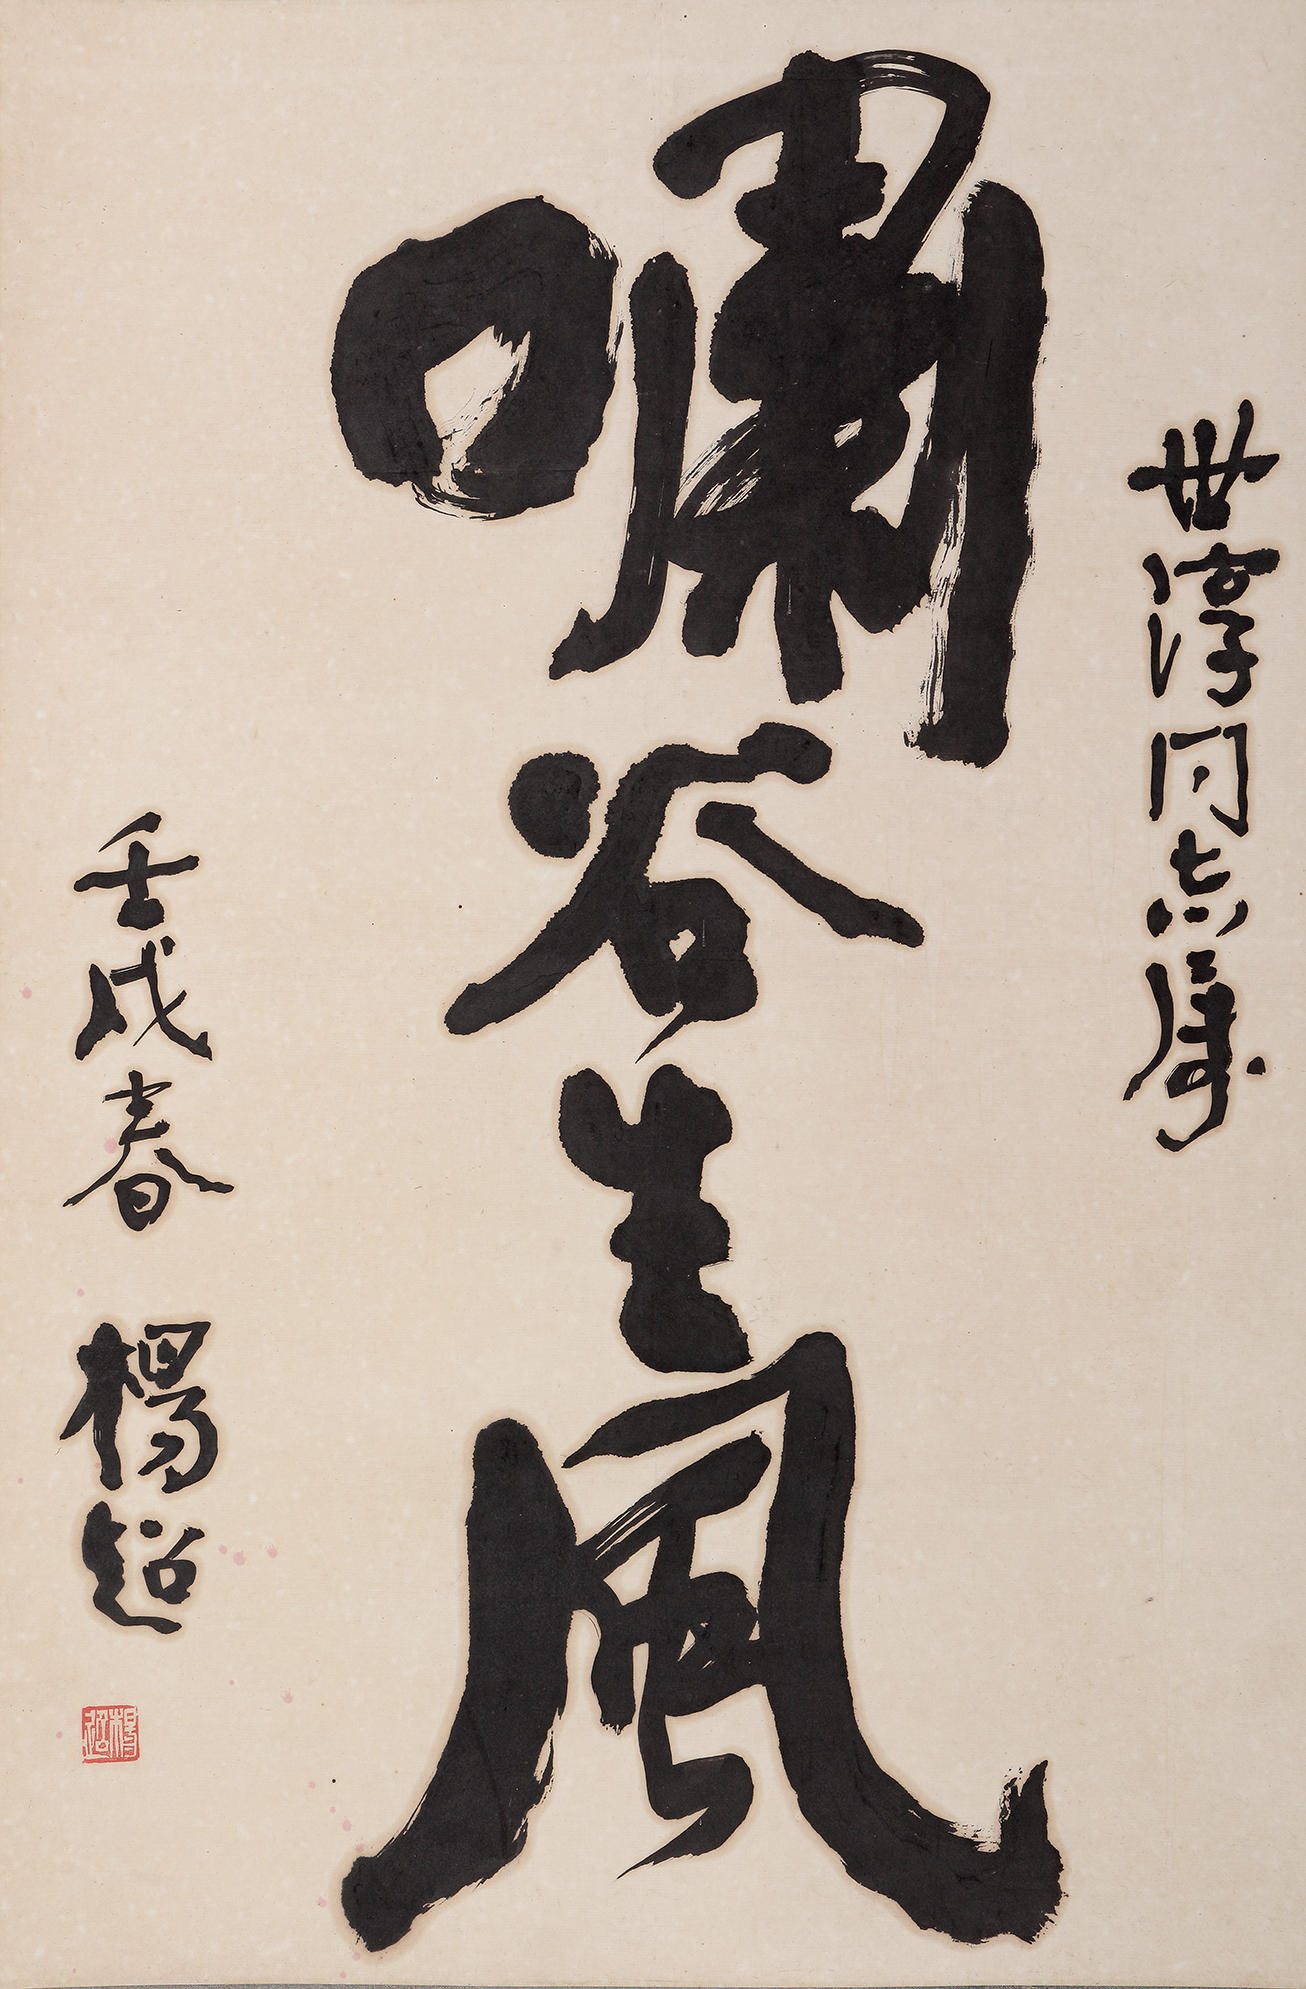 世淳同志属
嘯谷生風
壬戌春 楊超
楊超